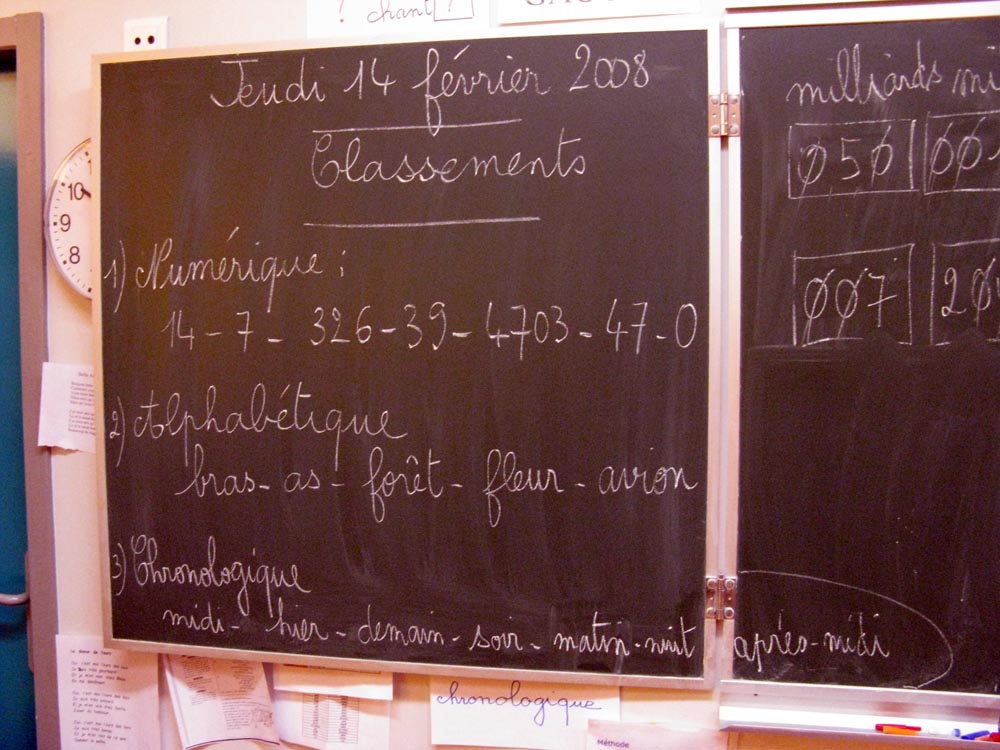 ? chant ?
Jeudi 14 février 2008
Classements
1) Numérique :
14 - 7 - 326 - 39 - 4703 - 47 - 0
2) Alphabétique
bras - as - forêt - fleur - avion
3) Chronologique
midi - hier - demain - soir - matin - nuit après-midi
milliards
050
007
10
9
8
chronologique
Méthode